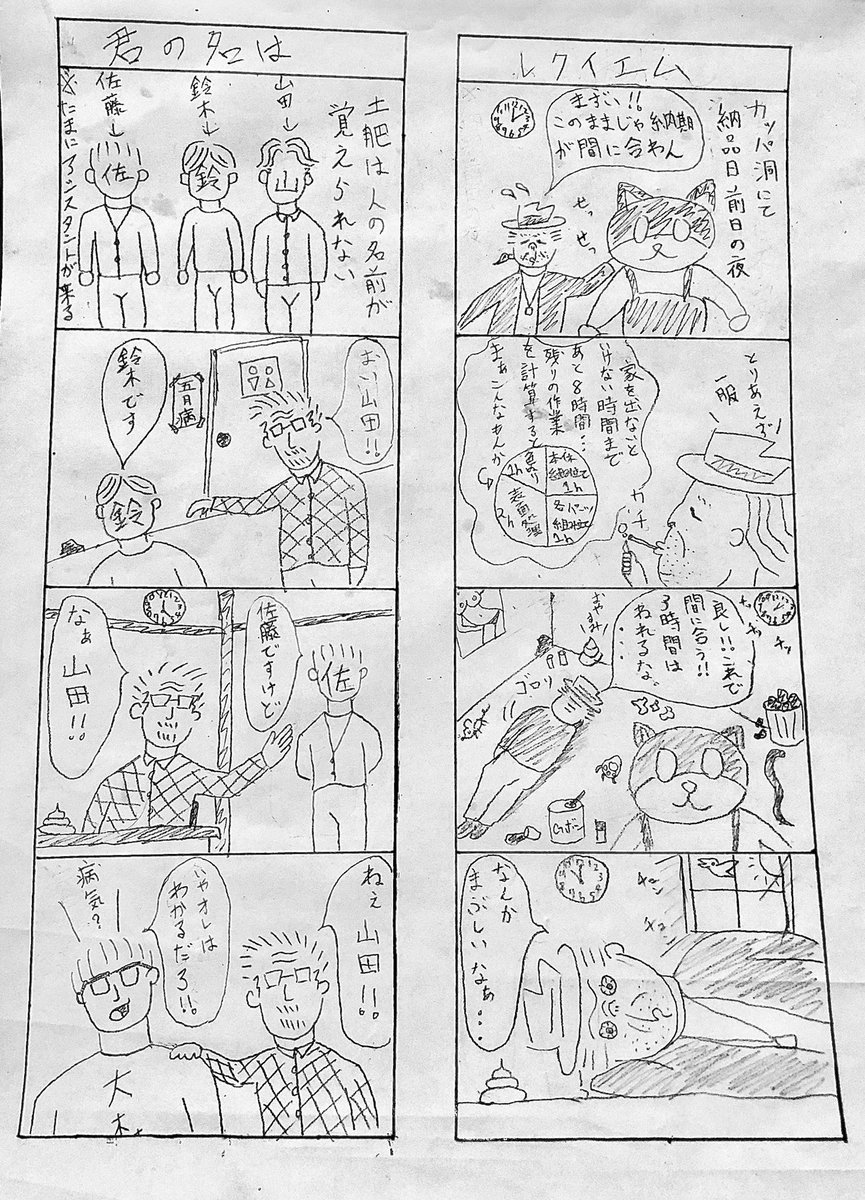 レクイエム
カッパ洞にて
納品日前日の夜
まずい!!
このままじゃ納期
が間に合わん
せっ
せっ
とりあえず
一服
カチ
家を出ないと
いけない時間まで
あと8時間…
残りの作業
を計算すると
まぁこんなもんか
本体
組立て
1h
各パーツ
組立て
1h
表面処理
2h
色塗り
1h
良し!!これで
間に合う!!
3時間は
ねれるな。
チッ
チッ
チッ
おやすみ
ゴロリ
Gボン
チュン
チュン
なんか
まぶしいなぁ…
君の名は
土肥は人の名前が
覚えられない
山田↓
鈴木↓
佐藤↓
山
鈴
佐
※たまにアシスタントが来る
おい山田!!
五月病
鈴木です
鈴
佐藤ですけど
佐
なぁ山田!!
ねぇ山田!!
いやオレは
わかるだろ!!
病気?
大木